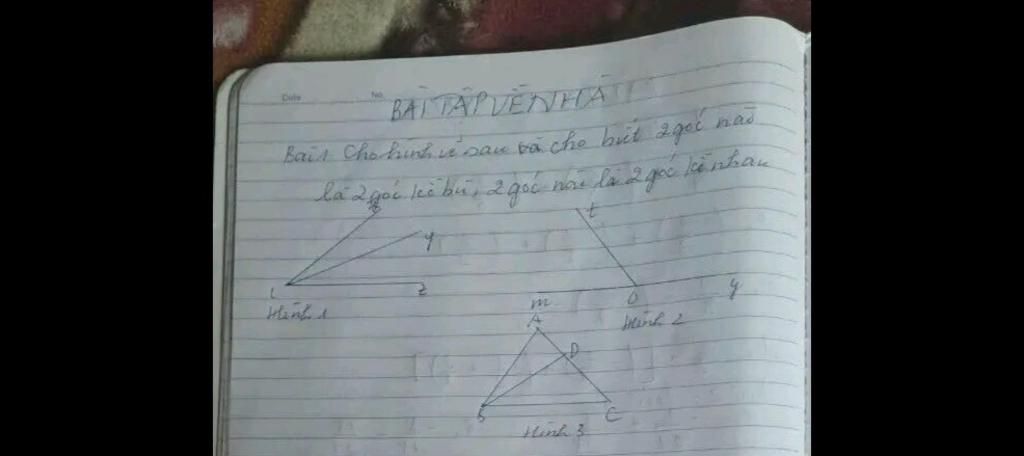 Date No.
BÀI TẬP VỀ NHÀ
Bài 1 Cho hình vẽ sau và cho biết 2 góc nào
là 2 góc kề bù, 2 góc nào là 2 góc kề nhau
t
y
L z
m O y
Hình 1
A Hình 2
D
B C
Hình 3